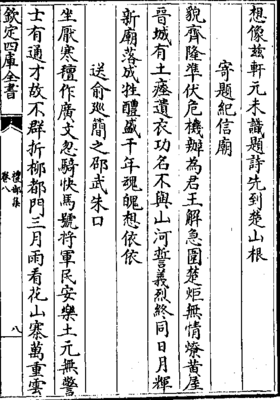 想像茲軒元未識題詩先到楚山根
寄題紀信廟
貌齊隆準伏危機辦為君王解急圍楚炬無情燎黄屋
晉城有土瘞遺衣功名不與山河誓義烈終同日月輝
新廟落成牲醴盛千年魂魄想依依
送俞巡簡之邵武朱口
坐厭寒氊作廣文忽騎快馬號將軍民安樂土元無警
士有通才故不群折柳都門三月雨看花山寨萬重雲
欽定四庫全書
禮部集
卷八
八